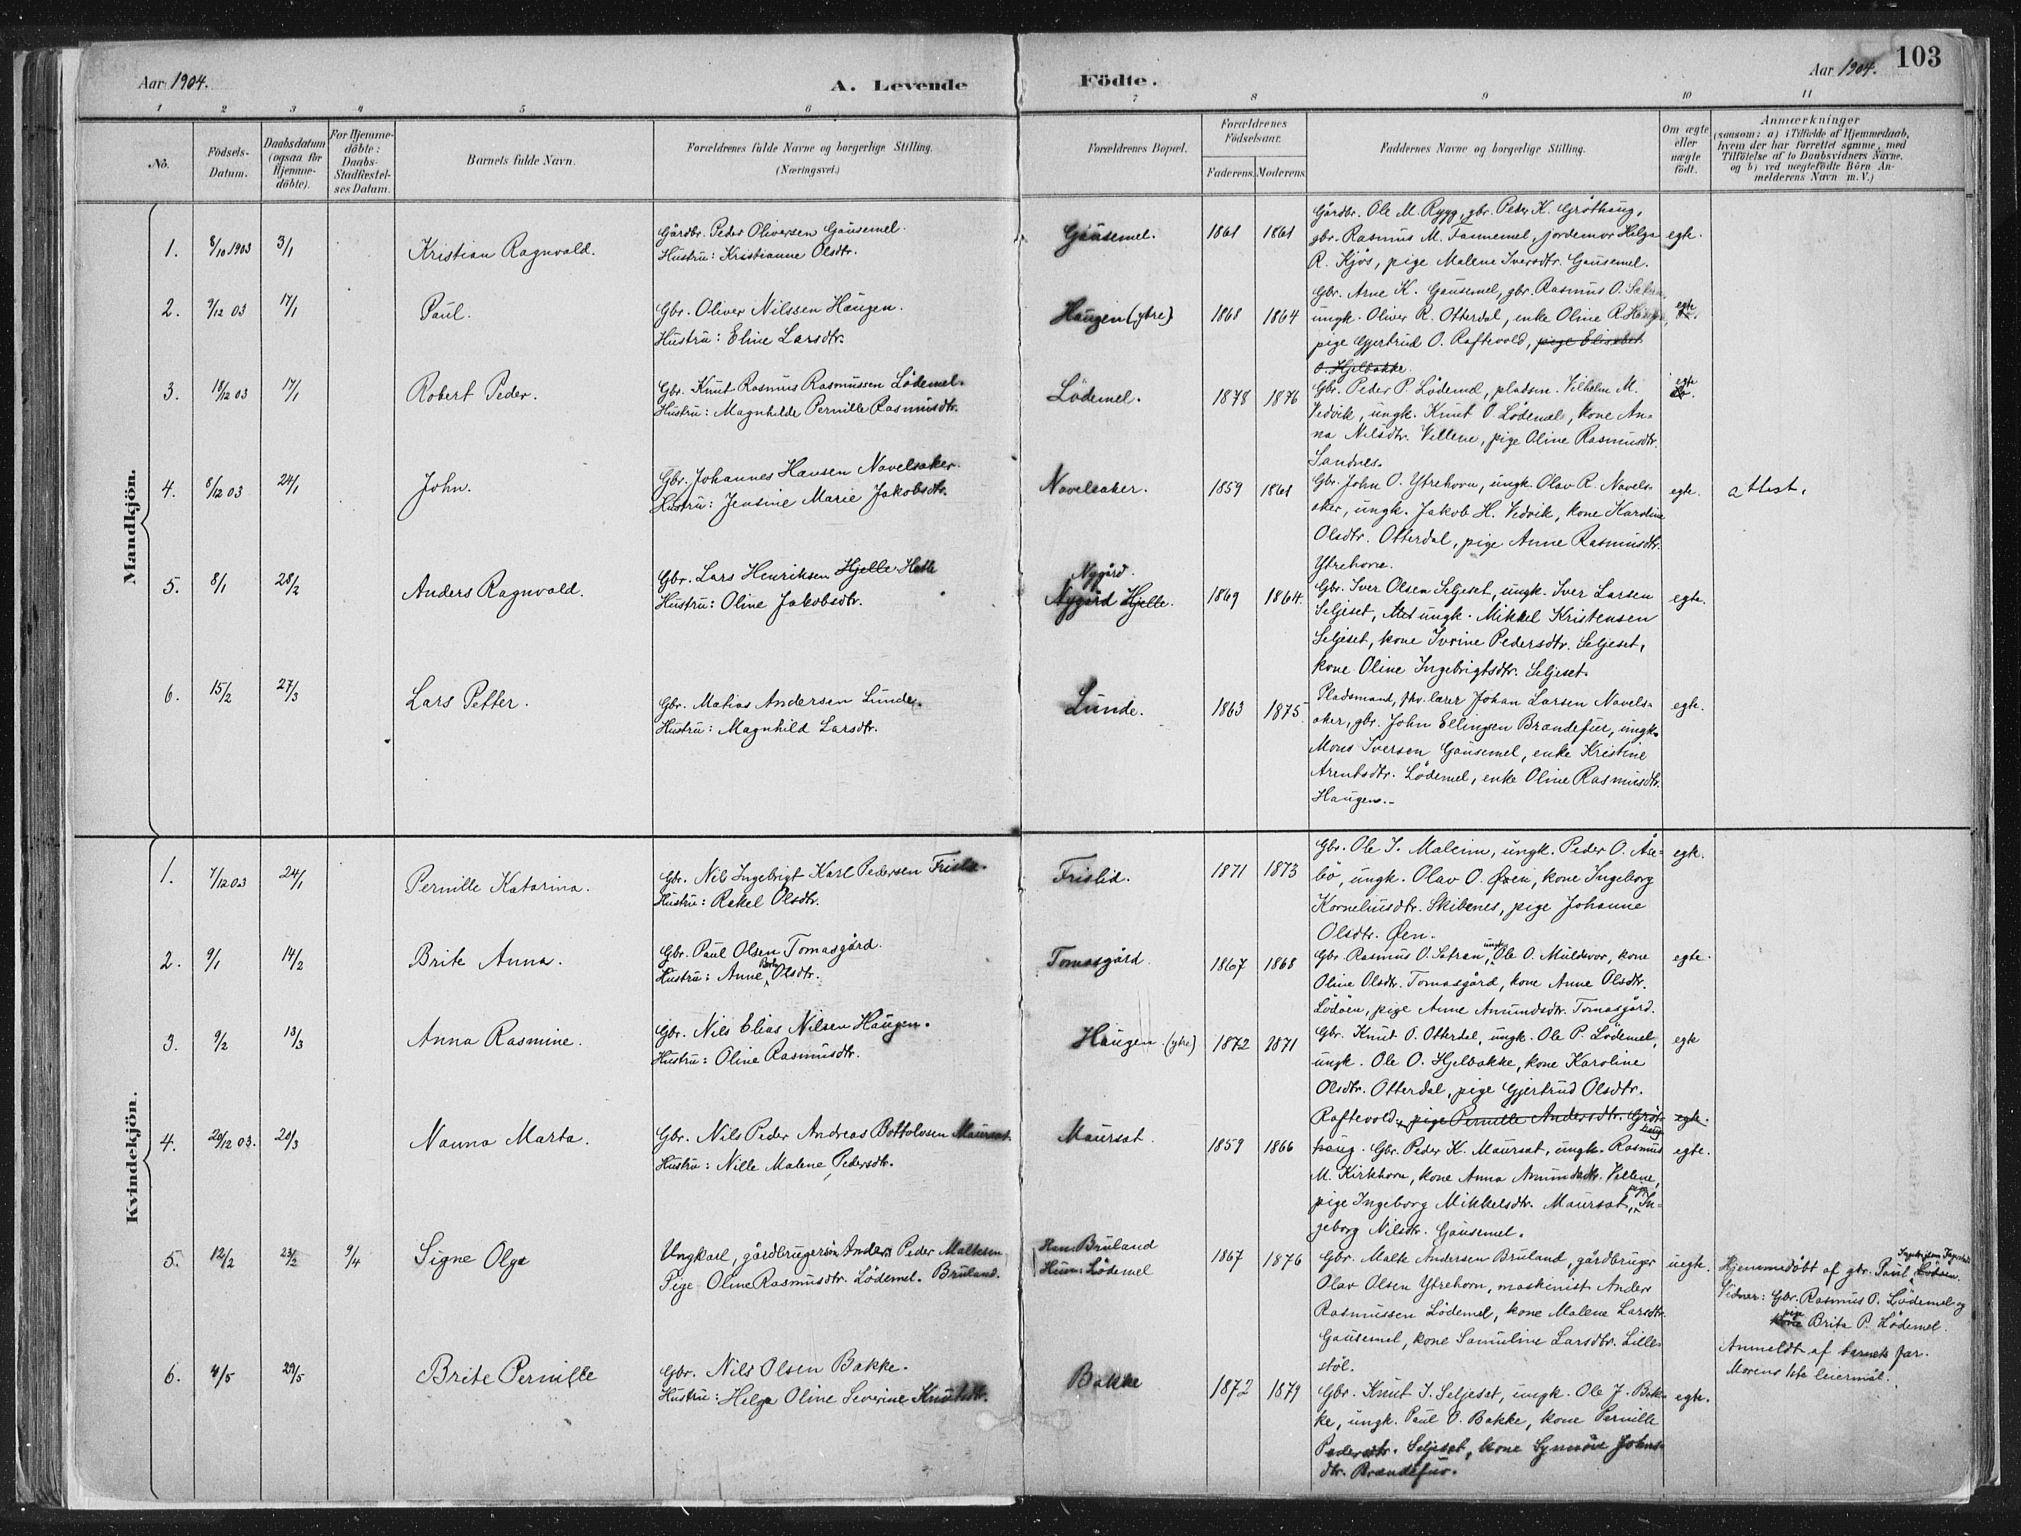 103
Aar 1904.
A. Levende Födte.
Aar 1904.
1 2 3 4 5 6 7 8 9 10 11
No.
Födsels-
Datum.
Daabsdatum
(ogsaa for
Hjemme-
döbte).
For Hjemme-
döbte:
Daabs-
Stadfæstel-
ses Datum.
Barnets fulde Navn.
Forældrenes fulde Navne og borgerlige Stilling.
(Næringsvei.)
Forældrenes Bopæl.
Forældrenes
Födselsaar.
Faderens. Moderens.
Faddernes Navne og borgerlige Stilling.
Om ægte
eller
uægte
født.
Anmærkninger
(saasom: a) i Tilfælde af Hjemmedaab,
hvem der har forrettet samme, med
Tilföielse af to Daabsvidners Navne,
og b) ved uægtefödte Börn An-
melderens Navn m. V.)
Mandkjön.
1. 8/10 1903 3/1 Kristian Ragnvald.
Gårdbr. Peder Oliversen Gausemel.
Hustru: Kristianne Olsdtr.
Gausemel. 1861 1861
Gårdbr. Ole M. Rygg, gbr. Peder K. Gröthaug,
gbr. Rasmus M. Tannemel, jordemor Helga
R. Kjös, pige Malene Iversdtr. Gausemel.
egte.
2. 9/12 03 17/1 Paul.
Gbr. Oliver Nilssen Haugen.
Hustru: Eline Larsdtr.
Haugen (ytre) 1868 1864
Gbr. Arne K. Gausemel, gbr. Rasmus O.
ungk. Oliver R. Otterdal, enke Oline R. Haugen,
pige Gjertrud O. Raftevold, pige Elisabet
O. Hjelbakke.
egte
3. 18/12 03 17/1 Robert Peder.
Gbr. Knut Rasmus Rasmussen Lödemel.
Hustru: Magnhilde Pernille Rasmusdtr.
Lödemel. 1878 1876
Gbr. Peder P. Lödemel, pladsm. Vilhelm M.
Vedvik, ungk. Knut O. Lödemel, kone An-
na Nilsdtr. Vellene, pige Oline Rasmusdtr.
Sandnes.
egte
4. 8/12 03 24/1 John.
Gbr. Johannes Hansen Navelsaker.
Hustru: Jensine Marie Jakobsdtr.
Navelsaker. 1859 1861
Gbr. John O. Ytrehorn, ungk. Olav R. Navels-
aker, ungk. Jakob H. Vedvik, kone Karoline
Olsdtr. Otterdal, pige Anne Rasmusdtr.
Ytrehorn.
egte. attest.
5. 8/1 28/2 Anders Ragnvald.
Gbr. Lars Henriksen Hjelle Holle
Hustru: Oline Jakobsdtr.
Nygård.
Nygård Hjelle. 1869 1864.
Gbr. Iver Olsen Seljeset, ungk. Iver Larsen
Seljeset, ungk. Mikkel Kristensen
Seljeset, kone Ivrine Pedersdtr. Seljeset,
kone Oline Ingebrigtsdtr. Seljeset.
egte.
6. 15/2 27/3 Lars Petter.
Gbr. Matias Andersen Lunde.
Hustru: Magnhild Larsdtr.
Lunde. 1863 1875.
Pladsmand, fhv. lærer Johan Larsen Navels-
aker, gbr. John Ellingsen Brandefur, ungk.
Mons Iversen Gausemel, enke Kristine
Arentsdtr. Lödemel, enke Oline Rasmusdtr.
Haugen.
egte.
Kvindekjön.
1. 7/12 03 24/1 Pernille Katarina.
Gbr. Nils Ingebrigt Karl Pedersen Frislid.
Hustru: Rakel Olsdtr.
Frislid. 1871 1873
Gbr. Ole I. Maleim, ungk. Peder O. Åse-
bö, ungk. Olav O. Øien, kone Ingeborg
Korneliusdtr. Skibenes, pige Johanne
Olsdtr. Øen.
egte.
2. 9/1 14/2 Brite Anna.
Gbr. Paul Olsen Tomasgård.
Hustru: Anne Berte Olsdtr.
Tomasgård 1867 1868
Gbr. Rasmus O. Sätran, ungk. Ole O. Muldsvor, kone
Oline Olsdtr. Tomasgård, kone Anne Olsdtr.
Lödöen, pige Anne Amundsdtr. Tomasgård.
egte.
3. 9/2 13/3 Anna Rasmine.
Gbr. Nils Elias Nilsen Haugen.
Hustru: Oline Rasmusdtr.
Haugen (ytre) 1872 1871
Gbr. Knut O. Otterdal, ungk. Ole P. Lödemel,
ungk. Ole O. Hjelbakke, kone Karoline
Olsdtr. Otterdal, pige Gjertrud Olsdtr.
Raftevold, pige Pernille Andersdtr. Gröt-
haug
egte
egte.
4. 20/12 03. 20/3 Nanna Marta.
Gbr. Nils Peder Andreas Bottolvsen Maursat.
Hustru: Nille Malene Pedersdtr.
Maursat. 1859 1866
haug. Gbr. Peder K. Maursat, ungk. Rasmus
M. Kirkhorn, kone Anna Amundsdtr. Vellene,
pige Ingeborg Mikkelsdtr. Maursat, pige In-
geborg Nilsdtr. Gausemel.
egte.
5. 12/2 23/2 9/4 Signe Olga
Ungkarl, gårdbrugersön Anders Peder Maltesen
Pige Oline Rasmusdtr. Lödemel. Bruland.
Han: Bruland
Hun: Lödemel
1867 1876
Gbr. Malte Andersen Bruland, gårdbruger
Olav Olsen Ytrehorn, maskinist Anders
Rasmussen Lödemel, kone Malene Larsdtr.
Gausemel, kone Samuline Larsdtr. Lille-
stöl.
uegte.
Hjemmedöbt af gbr. Paul
Vidner: Gbr. Rasmus O. Lödemel og
pige Brita P. Lödemel.
Anmeldt af barnets far.
Morens 1ste leiermål.
6. 4/5 29/5 Brite Pernille
Gbr. Nils Olsen Bakke.
Hustru: Helga Oline Severine Knutsdtr.
Bakke 1872 1879
Gbr. Knut I. Seljeset, ungk. Ole J. Bak-
ke, ungk. Paul O. Bakke, kone Pernille
Pedersdtr. Seljeset, kone Synnöve Johns-
dtr. Brandefur.
egte.